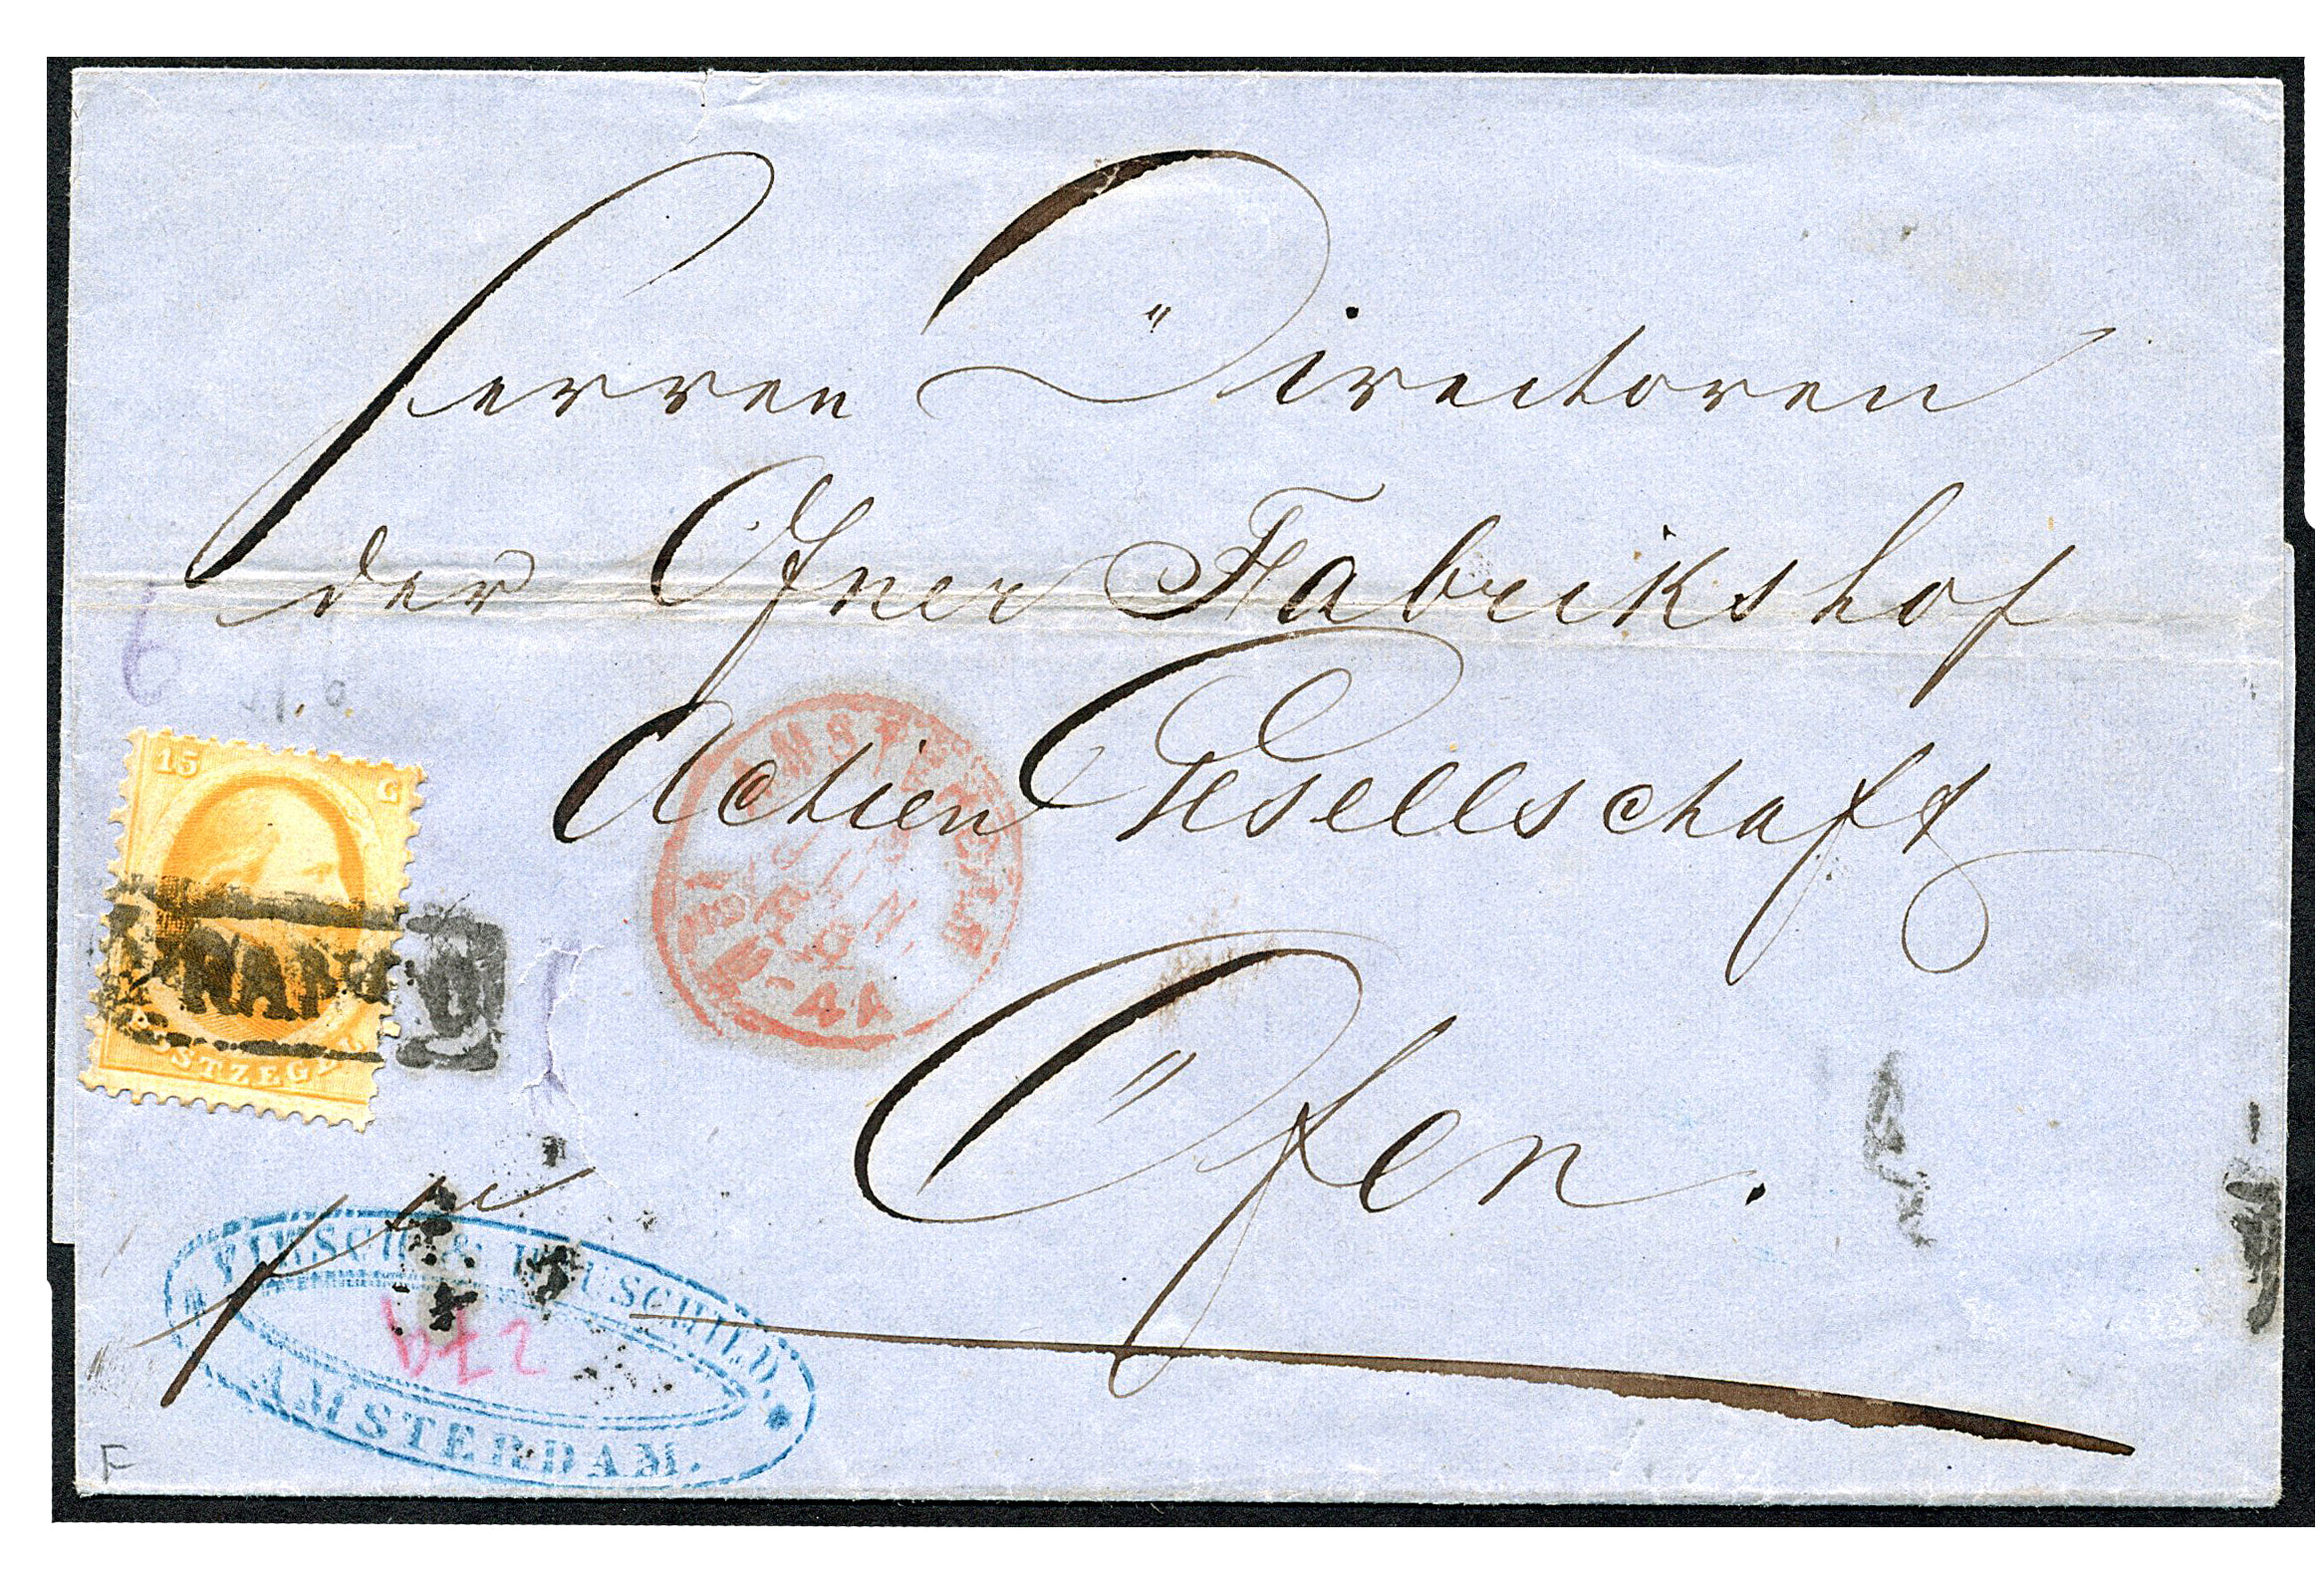 Herren Directoren
der Ofner Fabrikshof
Actien Gesellschaft
Ofen.
pr
15 C
POSTZEGEL
FRANCO
AMSTERDAM
& HAUSCHILD.
AMSTERDAM.
6
F